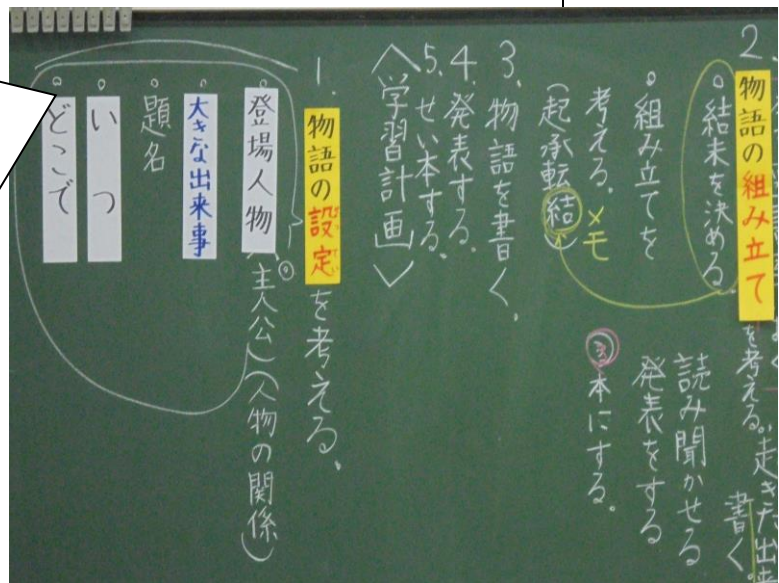 書く。
2.物語の組み立てを考える。
・結末を決める
・組み立てを
考える。メモ
(起承転結)
読み聞かせる
発表をする
③本にする。
3.物語を書く。
4.発表する。
5.せい本する。
〈学習計画〉
1.物語の設定を考える。
・登場人物(主人公)(人物の関係)
・大きな出来事
・題名
・いつ
・どこで